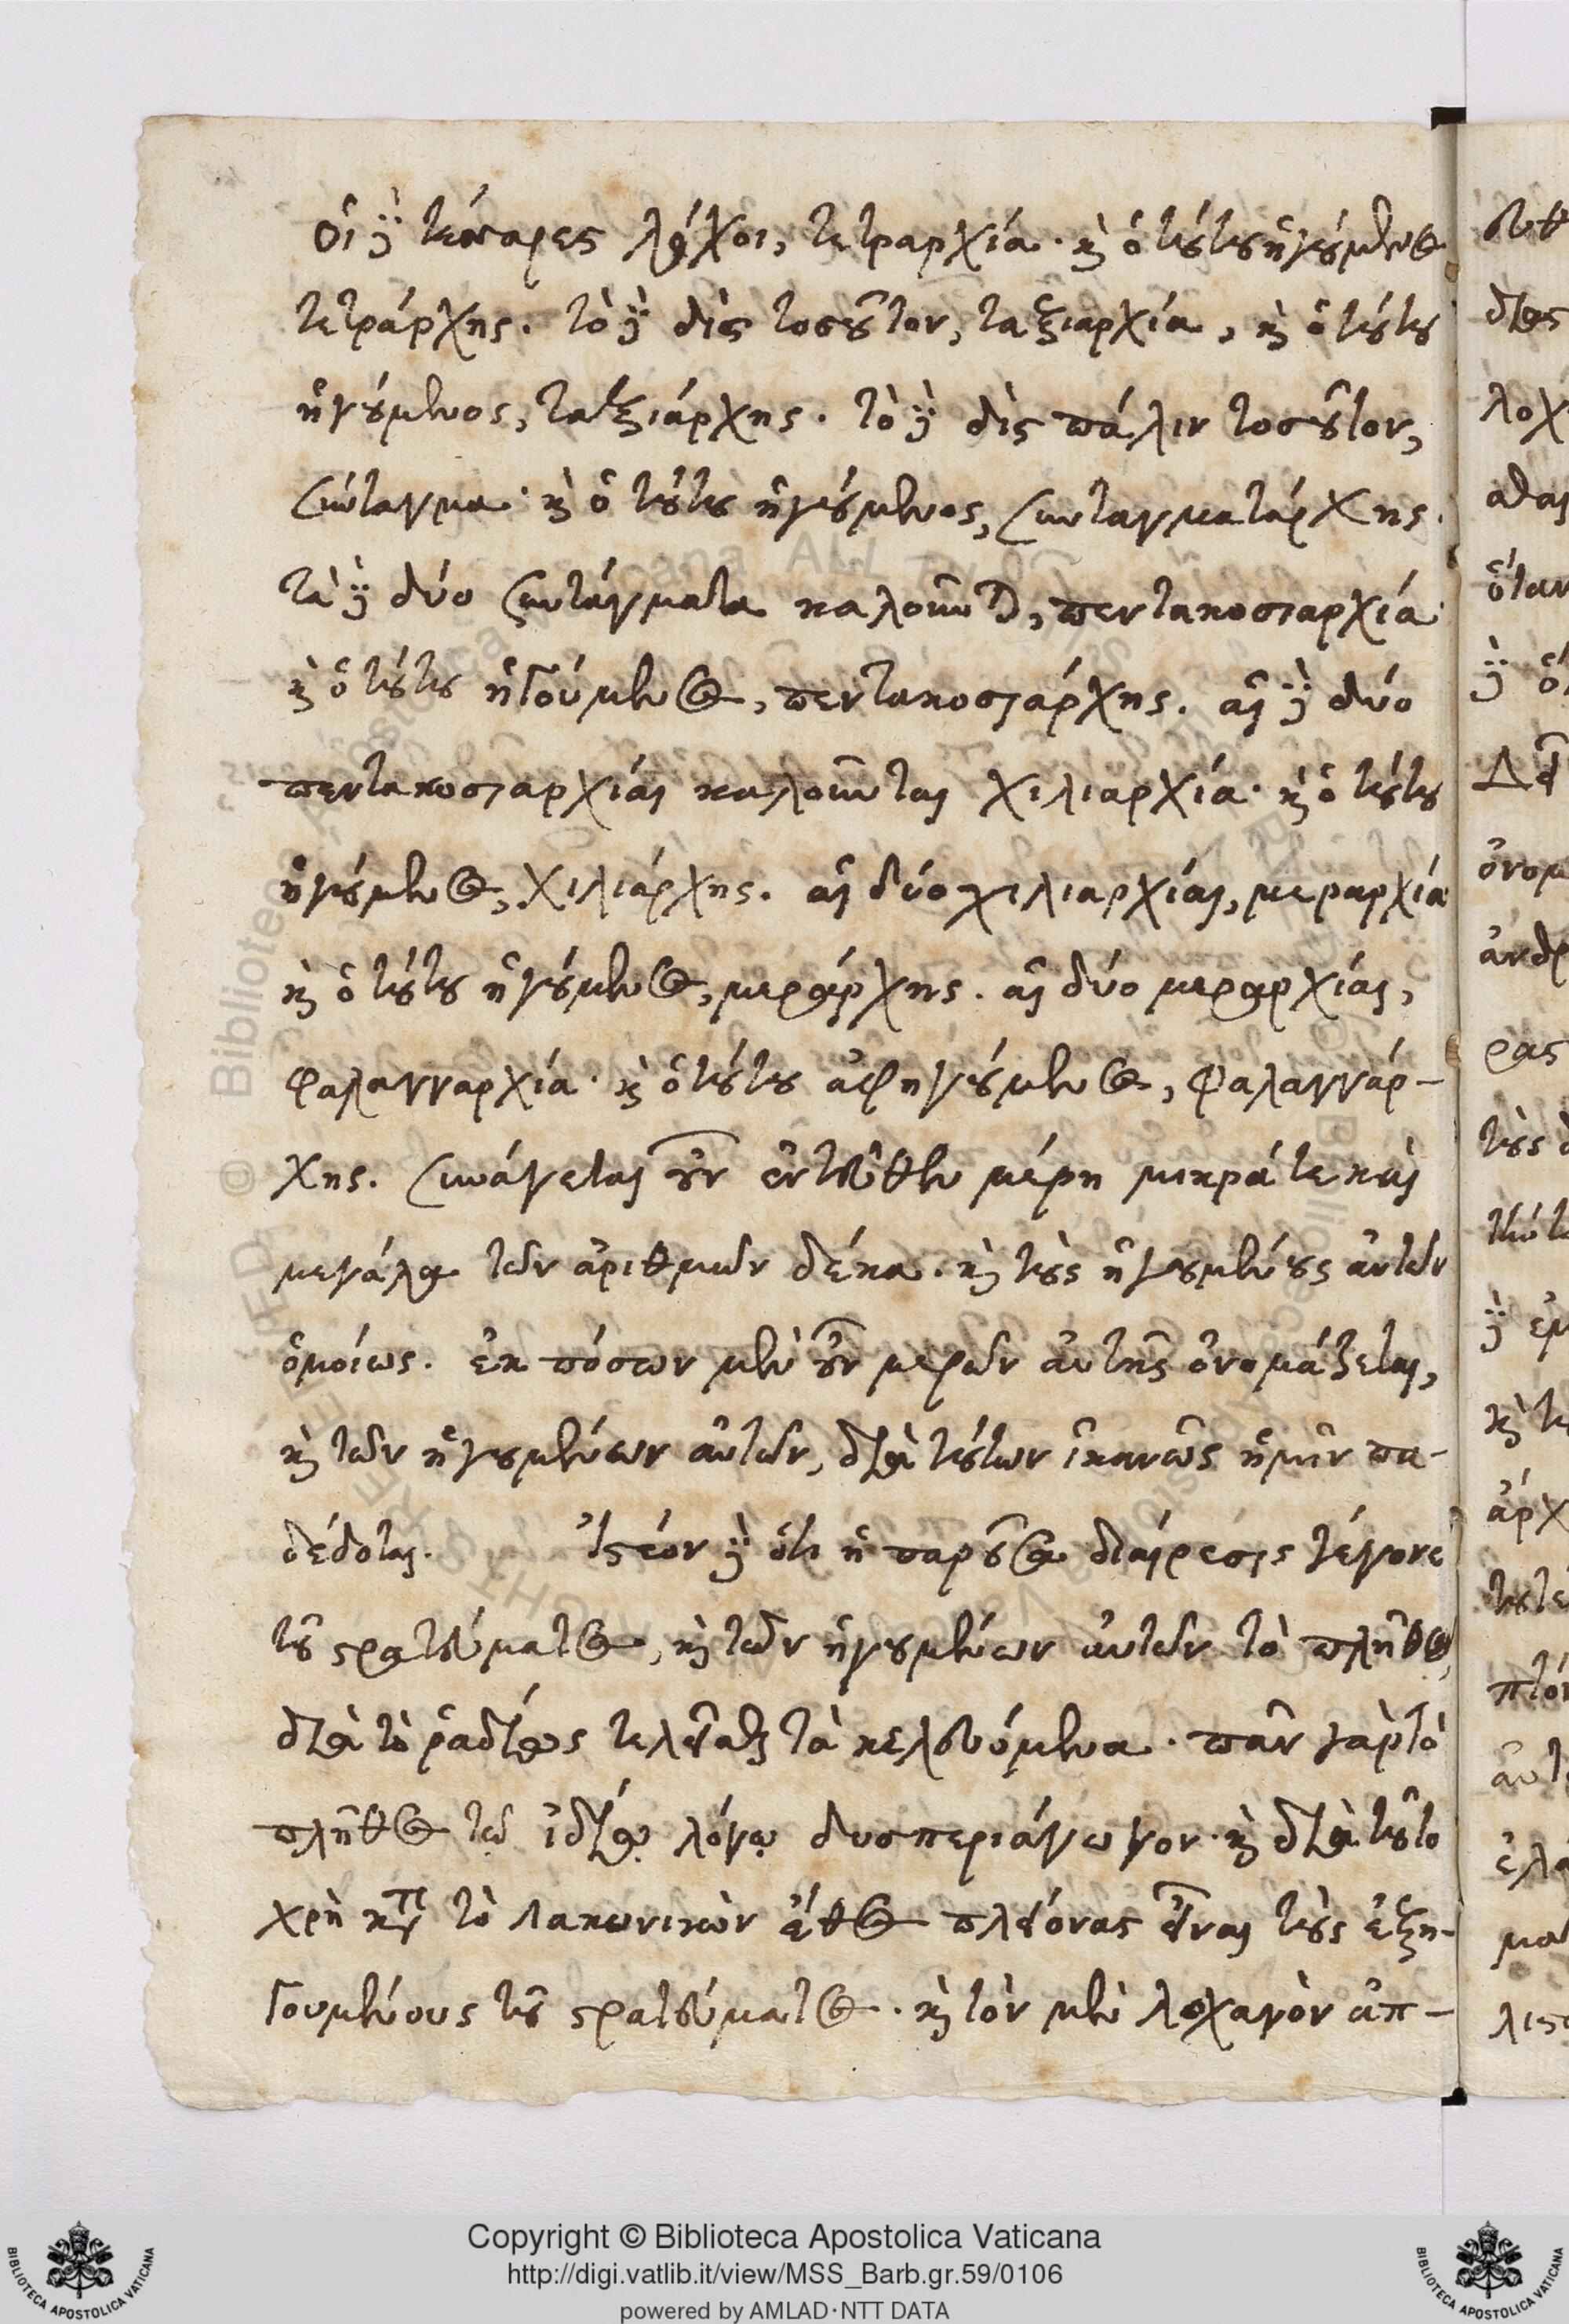 Οἱ δὲ τέσσαρες λόχοι, τετραρχία· καὶ ὁ τούτου ἡγούμενος
τετράρχης. τὸ δὲ δὶς τοσοῦτον, ταξιαρχία, καὶ ὁ τούτου
ἡγούμενος, ταξιάρχης. τὸ δὲ δὶς πάλιν τοσοῦτον,
σύνταγμα· καὶ ὁ τούτου ἡγούμενος, συνταγματάρχης.
τὰ δὲ δύο συντάγματα καλοῦνται, πεντακοσιαρχία·
καὶ ὁ τούτου ἡγούμενος, πεντακοσιάρχης. αἱ δὲ δύο
πεντακοσιαρχίαι καλοῦνται χιλιαρχία· καὶ ὁ τούτου
ἡγούμενος, χιλιάρχης. αἱ δύο χιλιαρχίαι, μεραρχία
καὶ ὁ τούτου ἡγούμενος, μεράρχης. αἱ δύο μεραρχίαι,
φαλαγγαρχία· καὶ ὁ τούτου ἀφηγούμενος, φαλαγγάρ-
χης. συνάγεται οὖν ἐντεῦθεν μέρη μικρά τε καὶ
μεγάλα τῶν ἀριθμῶν δέκα. καὶ τοὺς ἡγουμένους αὐτῶν
ὁμοίως. ἐκ πόσων μὲν οὖν μερῶν αὐτῆς ὀνομάζεται,
καὶ τῶν ἡγουμένων αὐτῶν, διὰ τούτων ἱκανῶς ἡμῖν πα-
δέδοται. ἰστέον δὲ ὅτι ἡ παροῦσα διαίρεσις γέγονε
τοῦ στρατεύματος, καὶ τῶν ἡγουμένων αὐτῶν τὸ πλῆθος,
διὰ τὸ ῥαδίως τελεῖσθαι τὰ κελευόμενα. πᾶν γὰρ τὸ
πλῆθος τῷ ἰδίῳ λόγῳ δυσπεριάγωγον· καὶ διὰ τοῦτο
χρὴ κατὰ τὸ λακωνικὸν ἔθος πλείονας εἶναι τοὺς ἐξη-
γουμένους τοῦ στρατεύματος. καὶ τὸν μὲν λοχαγὸν ἀπ-
Copyright © Biblioteca Apostolica Vaticana
http://digi.vatlib.it/view/MSS_Barb.gr.59/0106
powered by AMLAD·NTT DATA
BIBLIOTECA APOSTOLICA VATICANA
BIBLIOTECA APOSTOLICA VATICANA